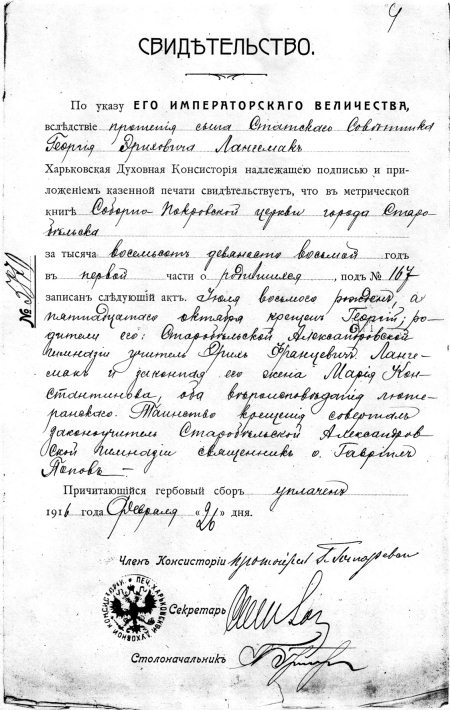 4
СВИДѢТЕЛЬСТВО.
По указу ЕГО ИМПЕРАТОРСКАГО ВЕЛИЧЕСТВА,
вслѣдствіе прошенія сына Статскаго Совѣтника
Георгія Эриховича Лангемакъ
Харьковская Духовная Консисторія надлежащею подписью и при-
ложеніемъ казенной печати свидѣтельствуетъ, что въ метрической
книгѣ Соборно-Покровской церкви города Старо-
бѣльска
за тысяча восемьсотъ девяносто восьмой годъ
въ первой части о родившихся, подъ № 167
записанъ слѣдующій актъ. Іюля восьмого рожденъ, а
пятнадцатаго октября крещенъ Георгій; ро-
дители его: Старобѣльской Александровской
гимназіи учитель Эрихъ Францевичъ Ланге-
макъ и законная его жена Марія Кон-
стантинова, оба вѣроисповѣданія люте-
ранскаго. Таинство крещенія совершалъ
законоучитель Старобѣльской Александров-
ской гимназіи священникъ о. Гавріилъ
Поповъ
Причитающійся гербовый сборъ уплаченъ
1916 года Февраля « » дня.
Членъ Консисторіи протоіерей
Секретарь
Столоначальникъ
ПЕЧ. ХАРЬКОВСКОЙ ДУХОВНОЙ КОНСИСТОРІИ